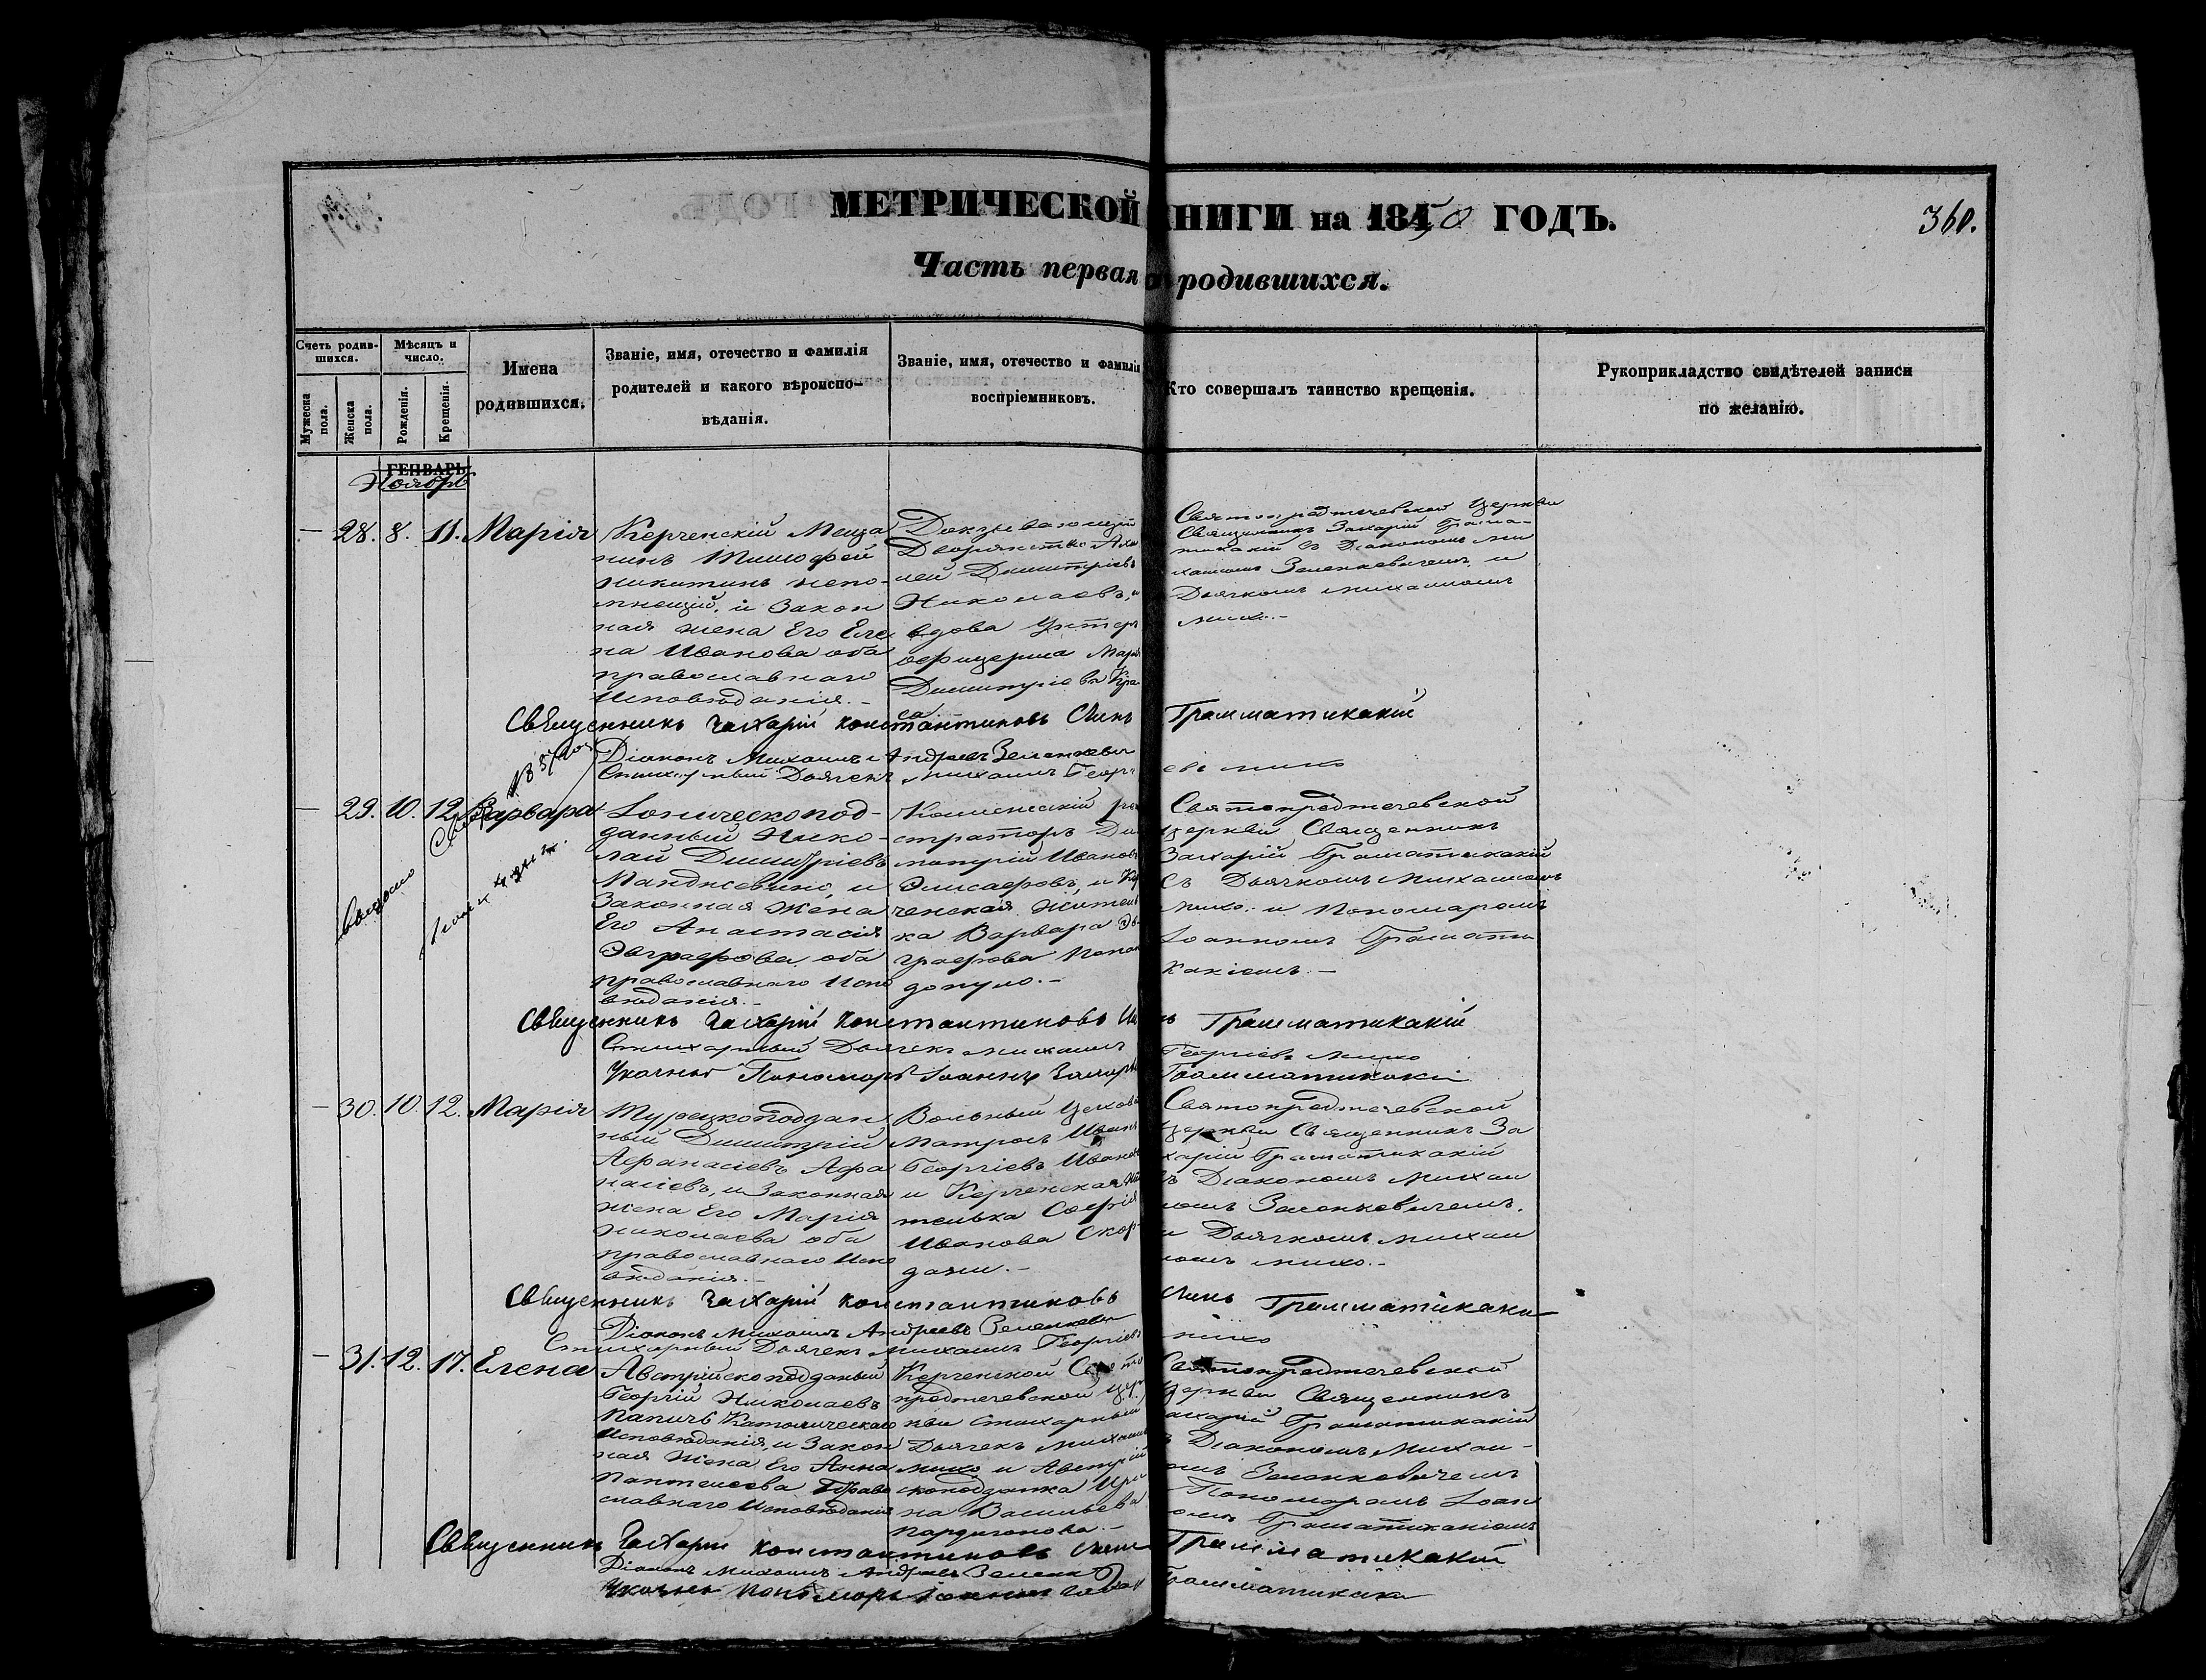 МЕТРИЧЕСКОЙ КНИГИ на 1850 ГОДЪ.
360.
Часть первая о родившихся.
Счетъ родив-
шихся.
Мужеска
пола.
Женска
пола.
Мѣсяцъ и
число.
Рожденія.
Крещенія.
Имена
родившихся.
Званіе, имя, отечество и фамилія
родителей и какого вѣроиспо-
вѣданія.
Званіе, имя, отечество и фамилія
воспріемниковъ.
Кто совершалъ таинство крещенія.
Рукоприкладство свидѣтелей записи
по желанію.
ГЕНВАРЬ
Ноябрь
— 28. 8. 11. Марія
Керченскій Меща
нинъ Тимофей
Никитинъ непо-
мнещій, и Закон
ная жена Его Еле
на Иванова оба
православнаго
Исповѣданія.-
Доказывающій
Дворянство
Димитріевъ
Николаевъ, и
вдова Унтеръ
офицерша Марія
Димитріева
Церкви
Священникъ Захарій Грама-
тикакій съ Діакономъ Ми
хаиломъ Зеленкевичемъ, и
Дьячкомъ Михаиломъ
Михо.-
Священникъ Захарій Константиновъ Сынъ Грамматикакій
Діаконъ Михаилъ Андреевъ Зеленкевич
Стихарный Дьячекъ Михаилъ Георгіевъ Михо
— 29. 10. 12. Варвара
Выдано
Іоническопод-
данный Нико-
лай Димитріевъ
и
Законная Жена
Его Анастасія
Эвграфова, оба
православнаго Испо
вѣданія.-
Коллежскій реги
страторъ Ди
митрій Ивановъ
Элисаеровъ, и Кер
ченская Житель
ка Варвара Эв
графова Папан
допуло.-
Святопредтечевской
церкви Священникъ
Захарій Граматикакій
съ Дьячкомъ Михаиломъ
Михо. и Пономаремъ
Іоанномъ Грамати
какіемъ.-
Священникъ Захарій Константиновъ Сынъ Грамматикакій
Стихарный Дьячекъ Михаилъ Георгіевъ Михо
Указный Пономарь Іоаннъ Захарьевъ Грамматикакій
— 30. 10. 12. Марія
Турецкоподдан
ный Димитрій
Афанасіевъ Афа
насіевъ, и Законная
жена Его Марія
Николаева оба
православнаго Испо
вѣданія.-
Вольный Цеховой
Матросъ Иванъ
Георгіевъ Ивановъ
и Керченская жи
телька Софія
Иванова Скор-
дани.-
Святопредтечевской
церкви Священникъ За
харій Граматикакій
съ Діакономъ Михаи
ломъ Зеленкевичемъ.
и Дьячкомъ Михаи
ломъ Михо.-
Священникъ Захарій Константиновъ Сынъ Грамматикакій
Діаконъ Михаилъ Андреевъ Зеленкевич
Стихарный Дьячекъ Михаилъ Георгіевъ Михо
— 31. 12. 17. Елена
Австрійскоподданый
Георгій Николаевъ
Папичъ Католическаго
Исповѣданія, и Закон
ная Жена Его Анна
Пантелеева Право
славнаго Исповѣданія
Керченской Свято
предтечевской Цер
кви Стихарный
Дьячекъ Михаилъ
Михо и Австрій
скоподданка Ири
на Васильева
Святопредтечевской
Церкви Священникъ
Захарій Граматикакій
съ Діакономъ Михаи-
ломъ Зеленкевичемъ
Пономаремъ Іоан
номъ Граматикакіемъ
Священникъ Захарій Константиновъ Сынъ Грамматикакій
Діаконъ Михаилъ Андреевъ Зеленк
Указный Пономарь Іоаннъ Грамматикаки